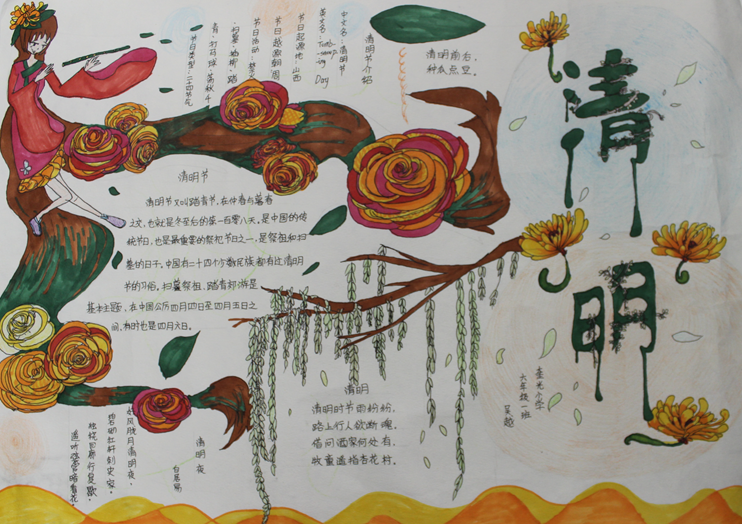 清明
清明前后，
种瓜点豆。
清明节介绍
中文名：清明节
英文名：Tomb-
sweeping Day
节日起源地：山西
节日起源朝：周
节日活动：祭
·扫墓·插柳·踏
青·打马球·荡秋千
节日类型：二十四节气
清明节
清明节又叫踏青节，在仲春与暮春
之交，也就是冬至后的第一百零八天。是中国的传
统节日，也是最重要的祭祀节日之一，是祭祖和扫
墓的日子。中国有二十四个少数民族都有过清明
节的习俗。扫墓祭祖、踏青郊游是
基本主题，在中国公历四月四日至四月五日之
间，有时也是四月六日。
清明
清明时节雨纷纷，
路上行人欲断魂。
借问酒家何处有，
牧童遥指杏花村。
清明夜
白居易
好风胧月清明夜，
碧砌红轩刺史家。
独绕回廊行复歇，
遥听弦管暗看花。
奎光小学
六年级一班
吴越